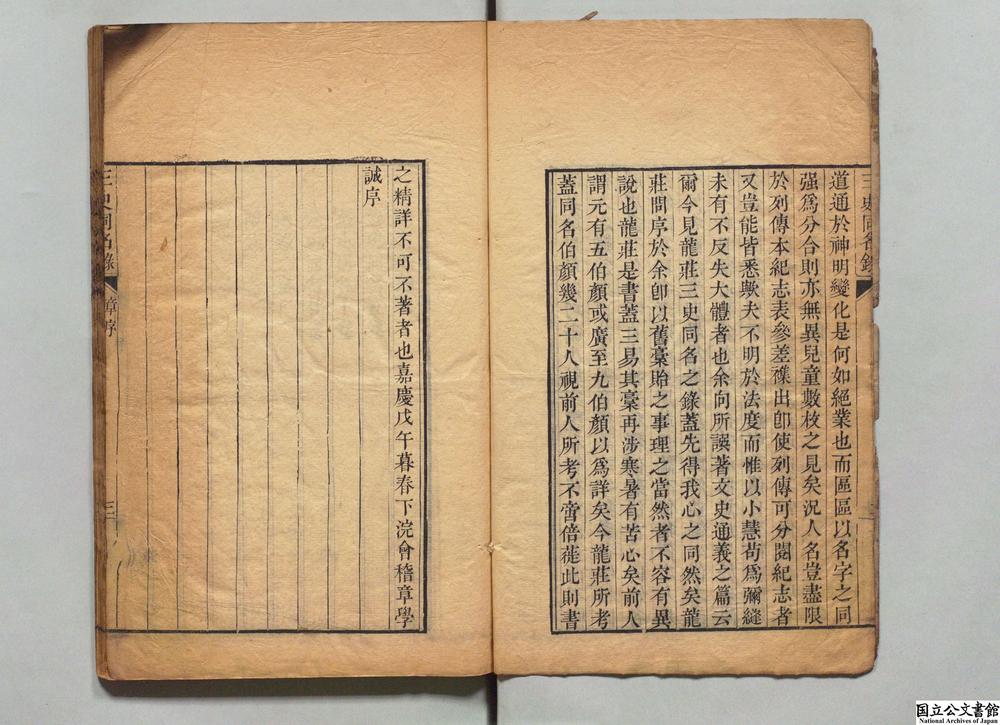 三史同名錄
道通於神明變化是何如絕業也而區區以名字之同
强爲分合則亦無異兒童數枚之見矣況人名豈盡限
於列傳本紀志表參差襍出卽使列傳可分閱紀志者
又豈能皆悉歟夫不明於法度而惟以小慧苟爲彌縫
未有不反失大體者也余向所譔著文史通義之篇云
爾今見龍莊三史同名之錄蓋先得我心之同然矣龍
莊問序於余卽以舊稾貽之事理之當然者不容有異
說也龍莊是書蓋三易其稾再涉寒暑有苦心矣前人
謂元有五伯顏或廣至九伯顏以爲詳矣今龍莊所考
蓋同名伯顏幾二十人視前人所考不啻倍蓰此則書
之精詳不可不著者也嘉慶戊午暮春下浣會稽章學
誠序
三史同名錄
章序
三
国立公文書館
National Archives of Japan